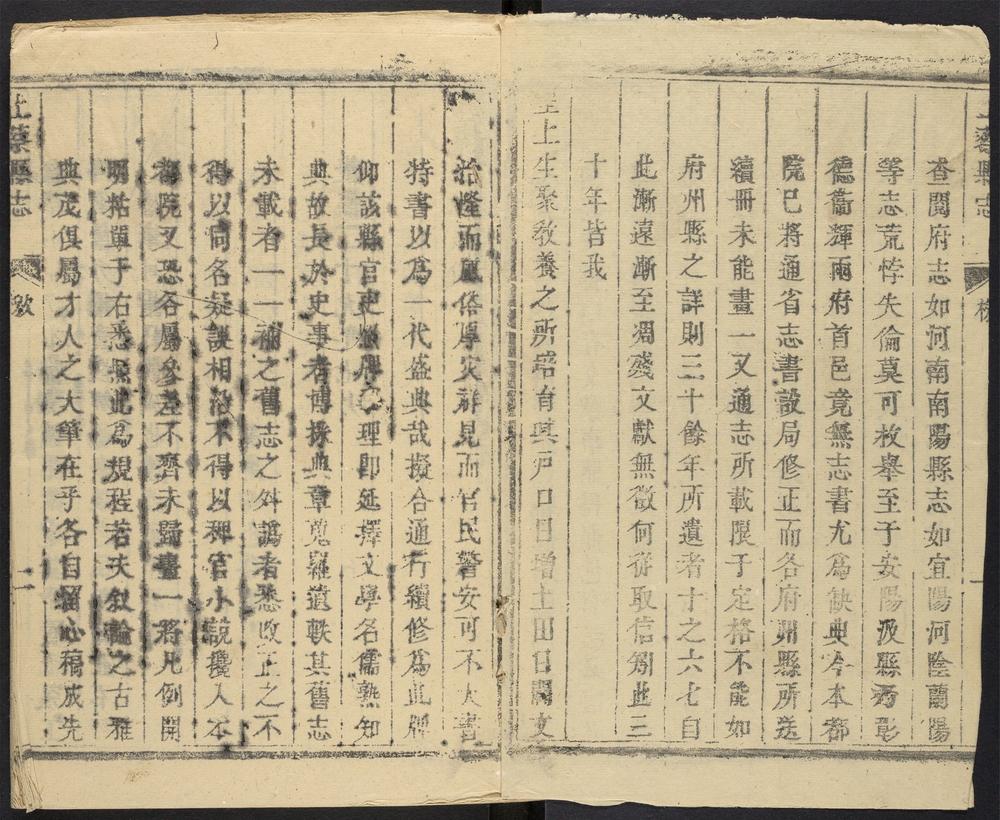 上蔡縣志
查閱府志如河南南陽縣志如宜陽河陰蘭陽
等志荒悖失倫莫可枚舉至于安陽汲縣為彰
德衞輝兩府首邑竟無志書尤為缺典今本都
院已將通省志書設局修正而各府州縣所送
續冊未能畫一又通志所載限于定格不能如
府州縣之詳則三十餘年所遺者十之六七自
此漸遠漸至凋殘文獻無徵何從取信矧此三
十年皆我
皇上生聚教養之所培育其戶口日增土田日闢文
治隆而風俗厚災祥見而官民警安可不大書
特書以爲一代盛典哉擬合通行續修爲此牌
仰該縣官吏照牌事理即延擇文學名儒熟知
典故長於史事者博採典章蒐羅遺軼其舊志
未載者一一補之舊志之舛譌者悉改正之不
得以同名疑誤相沿不得以稗官小說攙入本
都院又恐各屬參差不齊未歸畫一將凡例開
明粘單于右悉照此爲規程若夫敘論之古雅
典茂俱屬才人之大筆在乎各自留心稿成先
上蔡縣志
檄
二